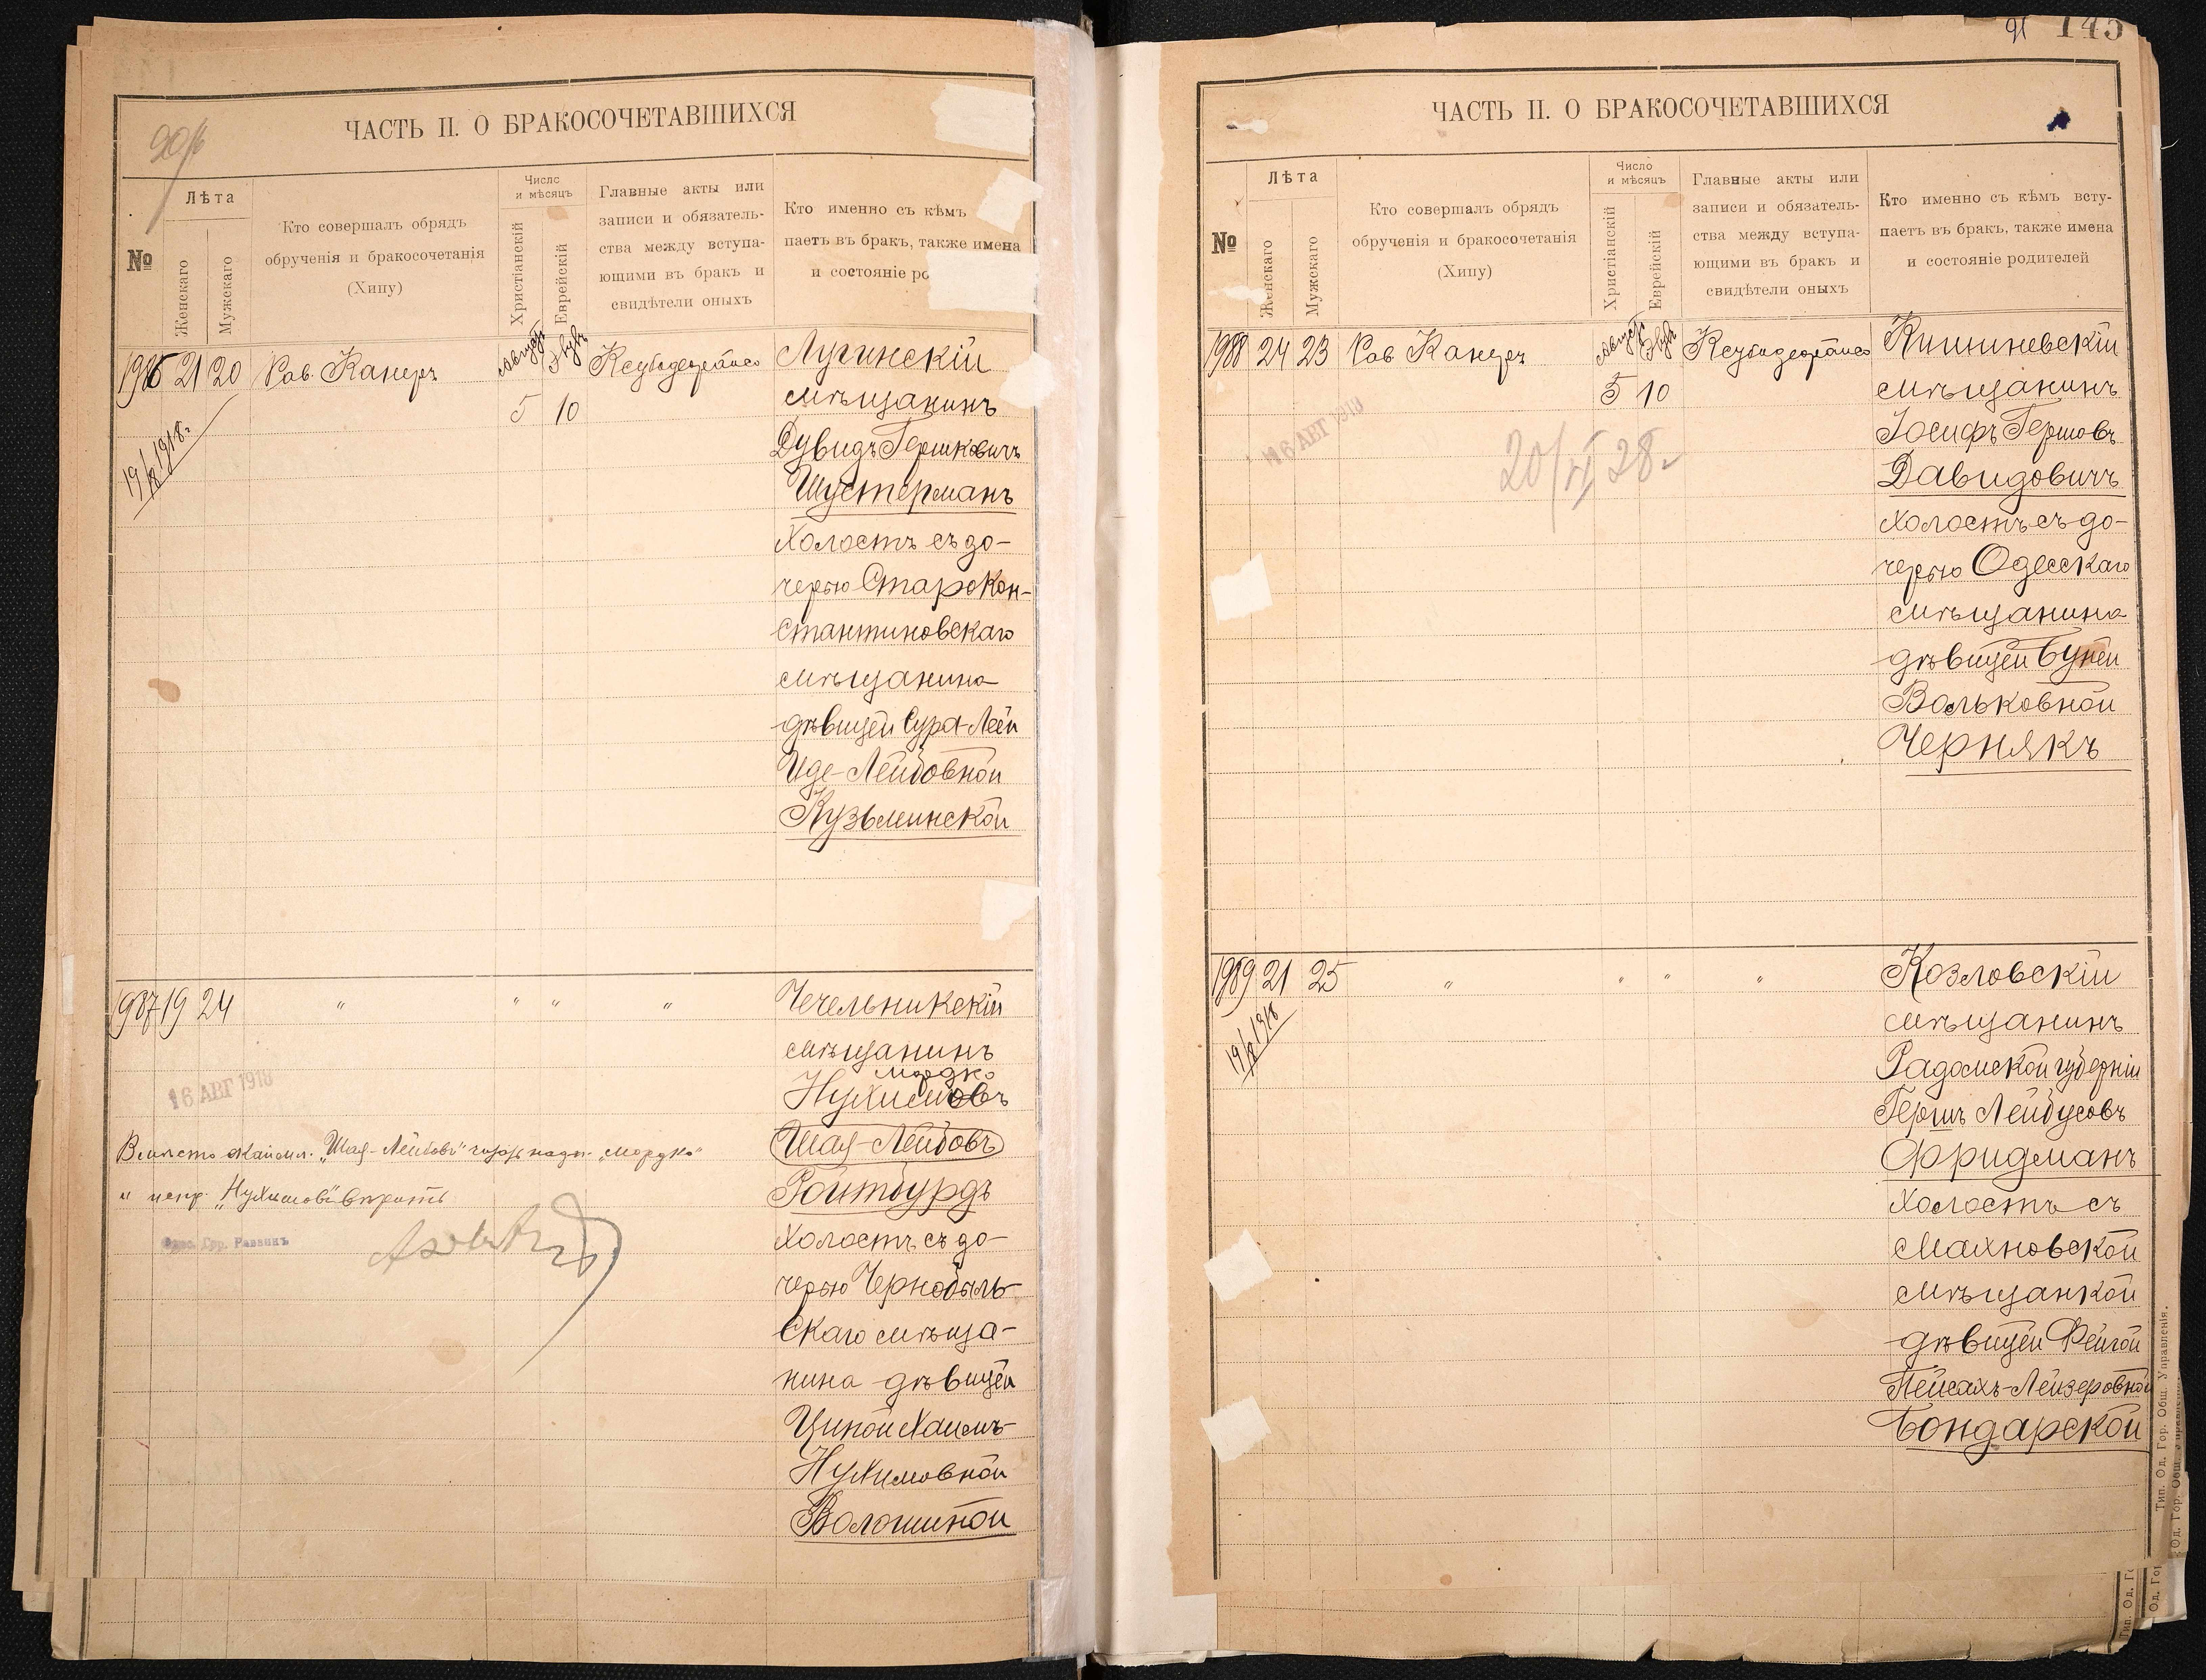 90/б
ЧАСТЬ II. О БРАКОСОЧЕТАВШИХСЯ
№
Лѣта
Женскаго
Мужскаго
Кто совершалъ обрядъ
обрученія и бракосочетанія
(Хипу)
Число
и мѣсяцъ
Христіанскій
Еврейскій
Главные акты или
записи и обязатель-
ства между вступа-
ющими въ бракъ и
свидѣтели оныхъ
Кто именно съ кѣмъ
паетъ въ бракъ, также имена
и состояніе ро
1986 21 20 Рав. Канеръ Августъ Элулъ Лугинскій
5 10 мѣщанинъ
Дувидъ Гершковичъ
Шустерманъ
холостъ съ до-
черью Старокон-
стантиновскаго
мѣщанина
дѣвицей Сура-Леей
Иде-Лейбовной
Кузьминской
19/8 1918 г.
1987 19 24 " " " " Чечельникскій
мѣщанинъ
Мордко
Нухимовъ
Шая-Лейбовъ
Ройтбурдъ
холостъ съ до-
черью Чернобыль-
скаго мѣща-
нина дѣвицей
Ципой Хаимъ-
Нухимовной
Волошиной
16 АВГ 1918
Вмѣсто "Шая-Лейбовъ" "Мордко"
и испр. "Нухимовъ" вѣрить
Одес. Гор. Раввинъ
91 145
ЧАСТЬ II. О БРАКОСОЧЕТАВШИХСЯ
№
Лѣта
Женскаго
Мужскаго
Кто совершалъ обрядъ
обрученія и бракосочетанія
(Хипу)
Число
и мѣсяцъ
Христіанскій
Еврейскій
Главные акты или
записи и обязатель-
ства между вступа-
ющими въ бракъ и
свидѣтели оныхъ
Кто именно съ кѣмъ всту-
паетъ въ бракъ, также имена
и состояніе родителей
1988 24 23 Рав Канеръ Августъ Элулъ Кишиневскій
5 10 мѣщанинъ
Іосифъ Гершовъ
Давидовичъ
холостъ съ до-
черью Одесскаго
мѣщанина
дѣвицей Буней
Вольковной
Чернякъ
16 АВГ 1918
20/VI 28 г
1989 21 25 " " " " Козловскій
мѣщанинъ
Радомской губерніи
Гершъ Лейбусовъ
Фридманъ
холостъ съ
Махновской
мѣщанкой
дѣвицей Фейгой
Пейсахъ-Лейзеровной
Бондарской
19/8 1918
Тип. Од. Гор. Общ. Управленія.